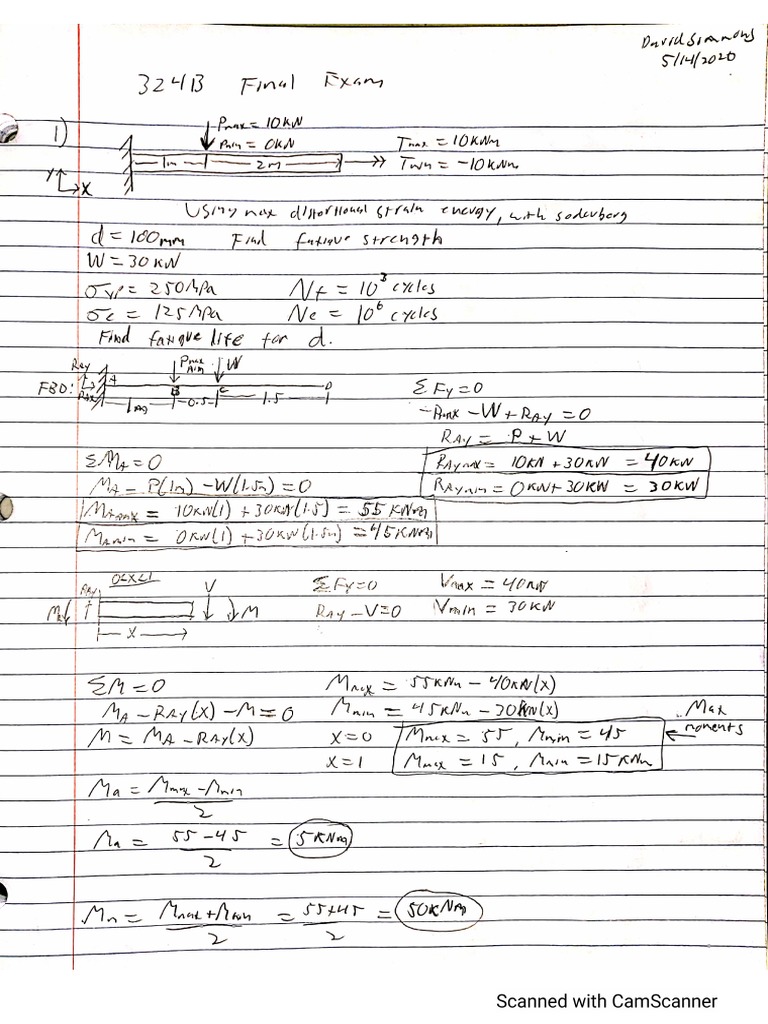 David Simmons
5/14/2020
324B Final Exam
1)
Pmax = 10KN
Pmin = 0KN
Tmax = 10KNm
Tmin = -10KNm
1m 2m
Y X
Using max distortional strain energy, with soderburg
d = 100mm Find fatique strength
W = 30KN
σyp = 250MPa Nf = 10^3 cycles
σe = 125MPa Ne = 10^6 cycles
Find fatigue life for d.
FBD: RAy RAx A Pmax Pmin W B C D
1m 0.5 1.5
ΣFy = 0
-Pmax - W + RAy = 0
RAy = P + W
RAymax = 10KN + 30KN = 40KN
RAymin = 0KN + 30KN = 30KN
ΣMA = 0
MA - P(1m) - W(1.5m) = 0
MAmax = 10KN(1) + 30KN(1.5) = 55KNm
MAmin = 0KN(1) + 30KN(1.5m) = 45KNm
0<x<1
RAy V
MA M
x
ΣFy = 0 Vmax = 40KN
RAy - V = 0 Vmin = 30KN
ΣM = 0 Mmax = 55KNm - 40KN(x)
MA - RAy(x) - M = 0 Mmin = 45KNm - 30KN(x)
M = MA - RAy(x) x=0 Mmax = 55, Mmin = 45 ← Max moments
x=1 Mmax = 15, Mmin = 15KNm
Ma = Mmax - Mmin / 2
Ma = 55 - 45 / 2 = 5KNm
Mm = Mmax + Mmin / 2 = 55+45 / 2 = 50KNm
Scanned with CamScanner